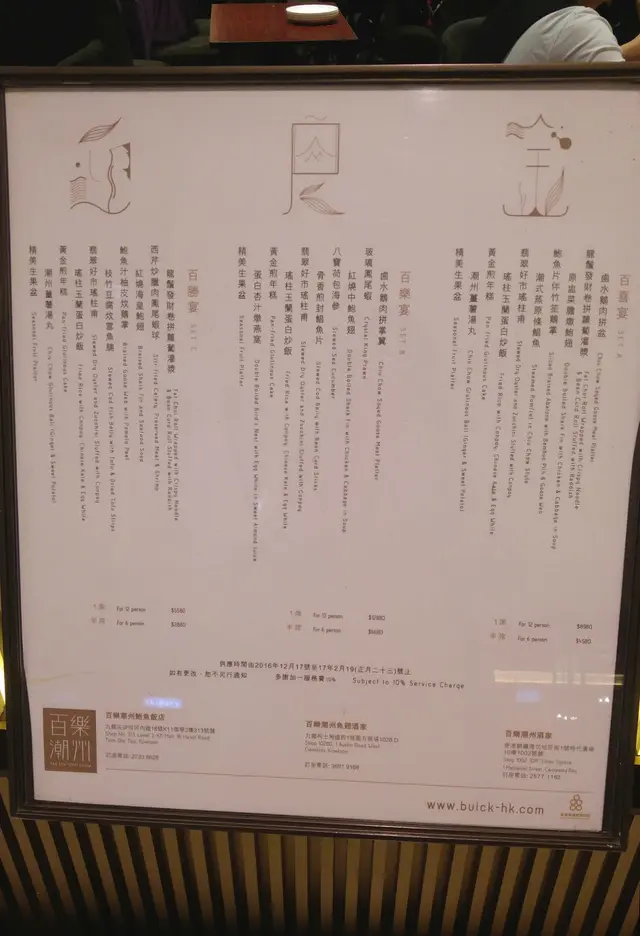 百喜宴 SET A
鹵水鵝肉拼盆
Chiu Chow Sliced Goose Meat Platter
龍鬚發財卷拼蘿蔔灌漿
Fat Choi Roll Wrapped with Crispy Noodle
& Bean Curd Roll Stuffed with Radish
原盅菜膽燉鮑翅
Double Boiled Shark Fin with Chicken & Cabbage in Soup
鮑魚片伴竹笙鵝掌
Sliced Braised Abalone with Bamboo Pith & Goose Web
潮式蒸原條鯧魚
Steamed Pomfret in Chiu Chow Style
翡翠好市瑤柱甫
Stewed Dry Oyster and Zucchini Stuffed with Conpoy
瑤柱玉蘭蛋白炒飯
Fried Rice with Conpoy, Chinese Kale & Egg White
黃金煎年糕
Pan-fried Glutinous Cake
潮州薑薯湯丸
Chiu Chow Glutinous Ball (Ginger & Sweet Potato)
精美生果盆
Seasonal Fruit Platter
百樂宴 SET B
鹵水鵝肉拼掌翼
Chiu Chow Sliced Goose Meat Platter
玻璃鳳尾蝦
Crystal King Prawn
紅燒中鮑魚翅
Double Boiled Shark Fin with Chicken & Cabbage in Soup
八寶荷包海參
Stewed Sea Cucumber
骨香煎封鯧魚片
Stewed Cod Belly with Bean Curd Slices
翡翠好市瑤柱甫
Stewed Dry Oyster and Zucchini Stuffed with Conpoy
瑤柱玉蘭蛋白炒飯
Fried Rice with Conpoy, Chinese Kale & Egg White
黃金煎年糕
Pan-fried Glutinous Cake
蛋白杏汁燉燕窩
Double Boiled Bird's Nest with Egg White in Sweet Almond Juice
精美生果盆
Seasonal Fruit Platter
百勝宴 SET C
龍鬚發財卷拼蘿蔔灌漿
Fat Choi Roll Wrapped with Crispy Noodle
& Bean Curd Roll Stuffed with Radish
西芹炒臘肉鳳尾蝦球
Stir Fried Celery, Preserved Meat & Shrimp
紅燒海皇鮑翅
Braised Shark Fin and Seafood Soup
鮑魚汁柚皮炆鵝掌
Braised Goose Web with Pomelo Peel
枝竹豆腐炆雪魚腩
Stewed Cod Fish Belly with Tofu & Dried Tofu Strips
翡翠好市瑤柱甫
Stewed Dry Oyster and Zucchini Stuffed with Conpoy
瑤柱玉蘭蛋白炒飯
Fried Rice with Conpoy, Chinese Kale & Egg White
黃金煎年糕
Pan-fried Glutinous Cake
潮州薑薯湯丸
Chiu Chow Glutinous Ball (Ginger & Sweet Potato)
精美生果盆
Seasonal Fruit Platter
For 12 person
For 6 person
For 12 person
For 6 person
For 12 person
For 6 person
供應時間由2016年12月17號至17年2月19(正月二十三)號止
如有更改，恕不另行通知 多謝加一服務費10% Subject to 10% Service Charge
百樂潮州
百樂潮州鮑魚飯店
Tsim Sha Tsui, Kowloon
百樂潮州魚翅酒家
百樂潮州酒家
訂座電話: 2577 1163
www.buick-hk.com